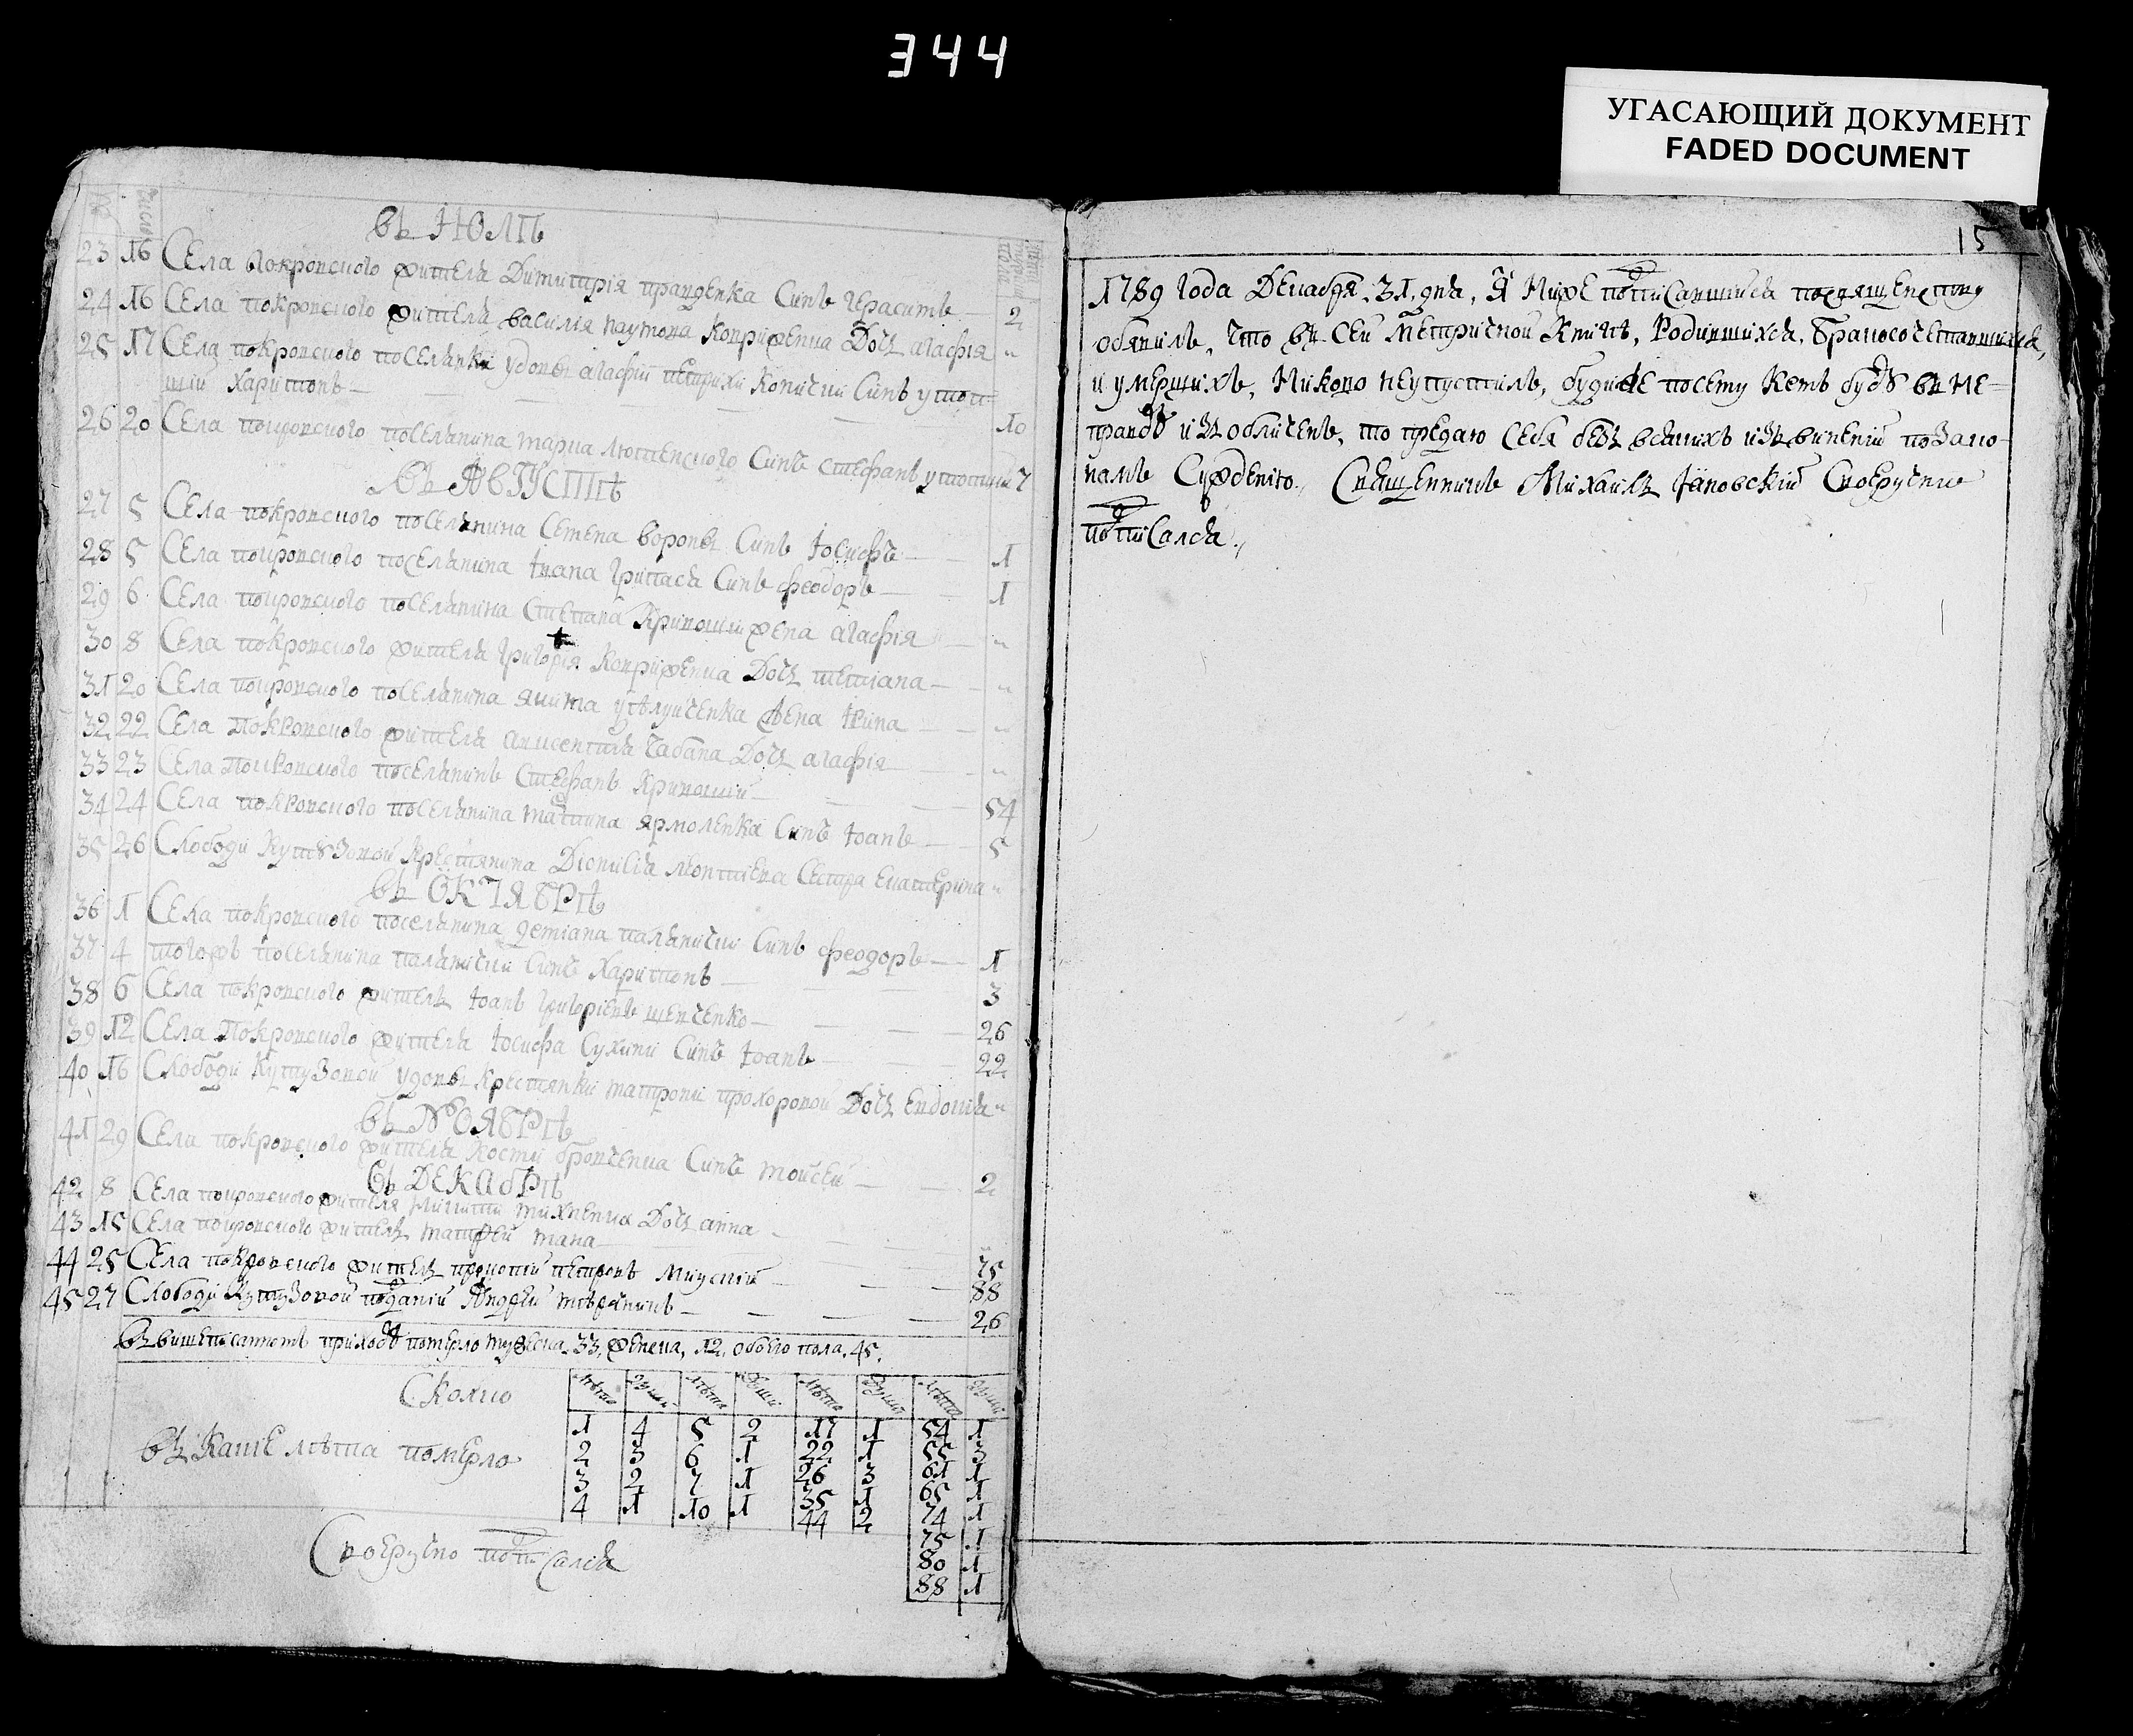 344
УГАСАЮЩИЙ ДОКУМЕНТ
FADED DOCUMENT
въ Июлѣ
23 16 Села покровского жителя Димитрїя правденка Синъ Герасимъ 2
24 16 Села покровского жителя василїя наумова Коприженка Дочъ агафїя "
25 17 Села покровского поселянки удовы агафїи петрихи Син утоп
шїй Харитонъ 10
26 20 Села покровского поселянина марка Синъ стефанъ 7
въ Августѣ
27 5 Села покровского поселянина Семена вороны Синъ Іосифъ 1
28 5 Села покровского поселянина Івана грипаса Синъ феодоръ 1
29 6 Села покровского поселянина Степана Кривошии жена агафїя "
30 8 Села покровского жителя григорїя Коприженка Дочъ тетїана "
31 20 Села покровского поселянина якима жена Ірина "
32 22 Села покровского жителя авксентїя чабана Дочъ агафїя "
33 23 Села покровского поселянинъ Стефанъ Кривошїй 54
34 24 Села покровского поселянина мартина ярмоленка Синъ Іоанъ 5
35 26 Слободи Кутузовой крестянина Дїонисїя Сестра Екатерина "
въ Октябрѣ
36 1 Села покровского поселянина демїана палянички Синъ феодоръ 1
37 4 тогожъ поселянина палянички Синъ Харитонъ 3
38 6 Села покровского житель Іоанъ григорїевъ шевченко 26
39 12 Села покровского жителя Іосифа Сухини Синъ Іоанъ 22
40 16 Слободи Кутузовой удовы крестянки матрони прохоровой Дочъ Евдокїя "
въ Ноябрѣ
41 29 Села покровского жителя кости бровченка Синъ мойсей 2
въ Декабрѣ
42 8 Села покровского жителя никити михненка Дочъ анна "
43 15 Села покровского житель матфей 75
44 25 Села покровского житель прокопїй петровъ 88
45 27 Слободи Кутузовой подданїй Андрей 26
въ вишеписанномъ приходѣ померло мужеска, 33, женска, 12, обоего пола, 45.
Сколко лѣта души лѣта души лѣта души лѣта души
въ Какїе лѣта померло
1 4 5 2 17 1 54 1
2 5 6 1 22 1 55 3
3 2 7 1 26 3 61 1
4 1 10 1 35 1 65 1
44 2 74 1
75 1
80 1
88 1
Своеручно подписался
15
1789 года Декабря, 31, дня, Я Ниже подписавшийся посвященству
обявилъ, что въ сей метричной Книгѣ, Родившихся, бракосочетавшихся,
и умершихъ, Никого неупустилъ, будиже посему Кемъ буду въ не-
правдѣ изъобличенъ, то предаю Себя безъ всякихъ изъвиненїй позако-
намъ Сужденїю. Священникъ Михаилъ Іановскїй Своеручно
подписался.